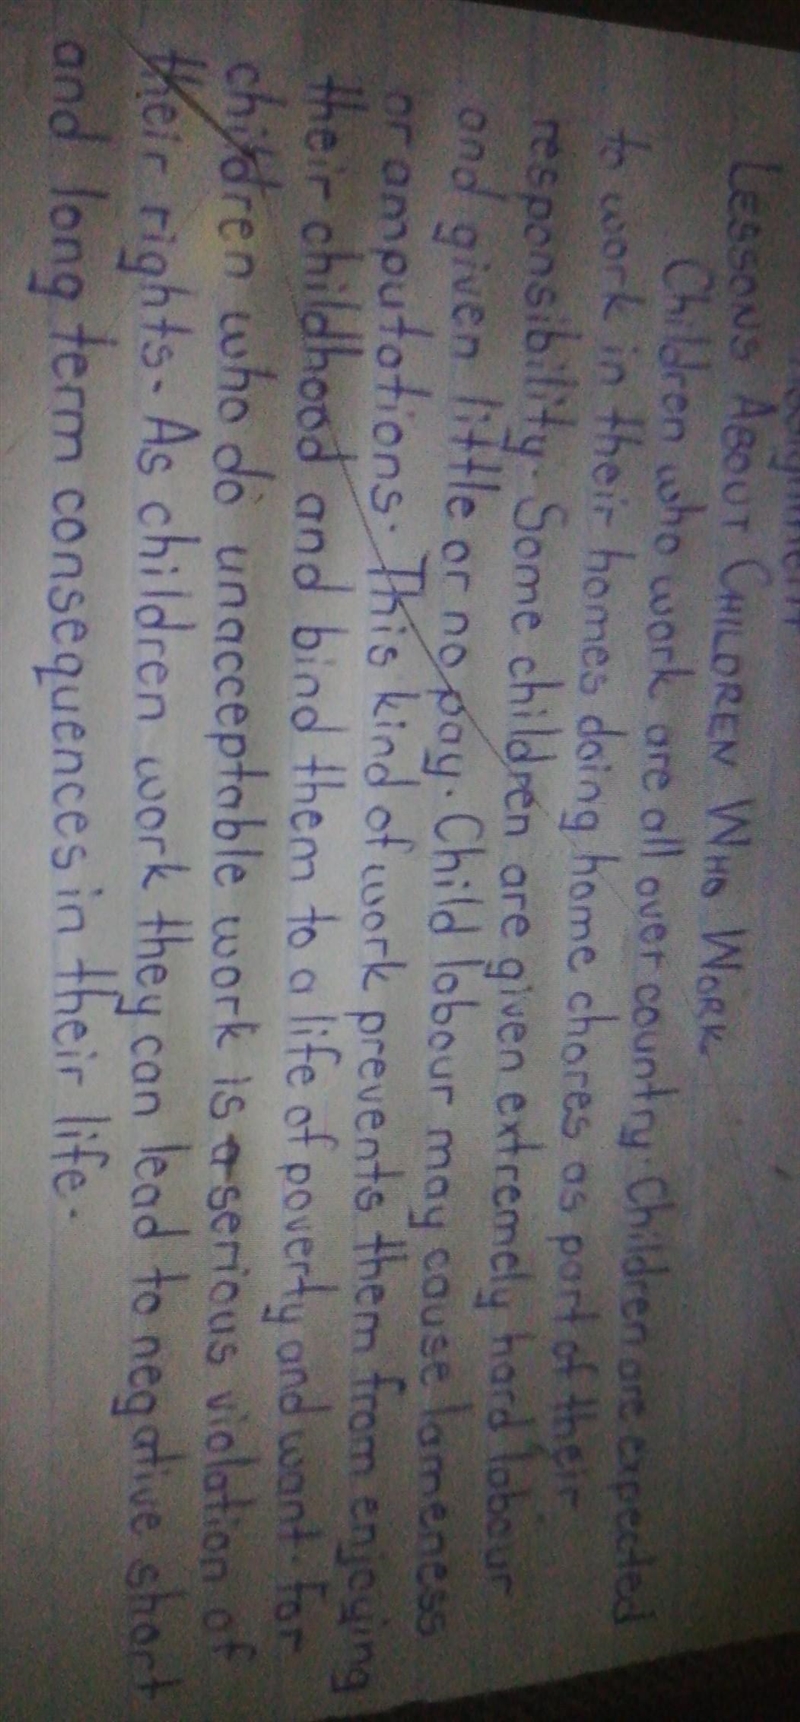 Assignment
LESSONS ABOUT CHILDREN WHO WORK
Children who work are all over country. Children are expected
to work in their homes doing home chores as part of their
responsibility. Some children are given extremely hard labour
and given little or no pay. Child labour may cause lameness
or amputations. This kind of work prevents them from enjoying
their childhood and bind them to a life of poverty and want. For
children who do unacceptable work is a serious violation of
their rights. As children work they can lead to negative short
and long term consequences in their life.